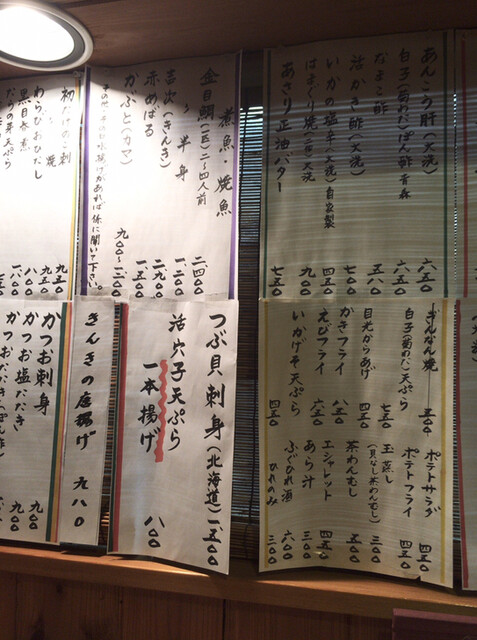 あんこう肝(大洗) 六五〇
白子(菊わた)ぽん酢 青森 六五〇
なまこ酢 五八〇
活かき酢(大洗) 七五〇
いかの塩辛(大洗)自家製 四五〇
はまぐり焼(一ケ)大洗 九〇〇
あさり正油バター 七五〇
煮魚・焼魚
金目鯛(一匹)二〜四人前 二四〇〇
〃 半身 一、二〇〇
吉次(きんき) 二、九〇〇
赤めばる 一、五〇〇
かぶと(カマ) 九〇〇〜一二〇〇
初がつお刺 九五〇
〃 焼 九五〇
わらびおひだし
黒目合煮
たらの芽天ぷら
ぎんなん焼 五〇〇
白子(菊わた)天ぷら 七五〇
目光からあげ 五七五
かきフライ 八五〇
えびフライ 六五〇
いかげそ天ぷら 四五〇
ポテトサラダ 四五〇
ポテトフライ 四五〇
玉蒸し
(具なし茶わんむし) 三〇〇
茶わんむし 五〇〇
エシャレット 四五〇
あら汁 三〇〇
ふぐひれ酒 六〇〇
ひれのみ 三〇〇
つぶ貝刺身(北海道) 一、五〇〇
活穴子天ぷら
一本揚げ 八〇〇
きんきの唐揚げ 九八〇
かつお刺身 九〇〇
かつお塩たたき 九〇〇
かつおたたき(ぽん酢)